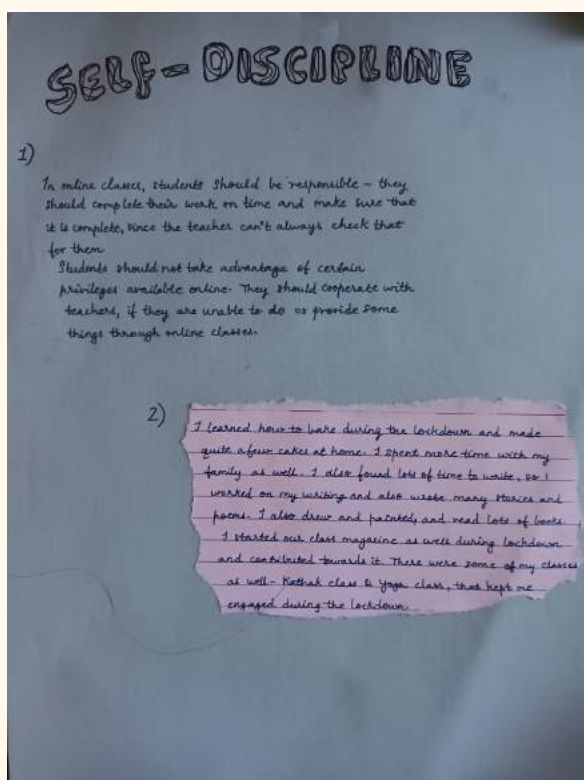 SELF-DISCIPLINE
1)
In online classes, students should be responsible - they
should complete their work on time and make sure that
it is complete, since the teacher can't always check that
for them
Students should not take advantage of certain
privileges available online. They should cooperate with
teachers, if they are unable to do or provide some
things through online classes.
2)
I learned how to bake during the lockdown and made
quite a few cakes at home. I spent more time with my
family as well. I also found lots of time to write, so I
worked on my writing and also wrote many stories and
poems. I also drew and painted, and read lots of books.
I started our class magazine as well during lockdown
and contributed towards it. There were some of my classes
as well - Kathak class & Yoga class, that kept me
engaged during the lockdown.